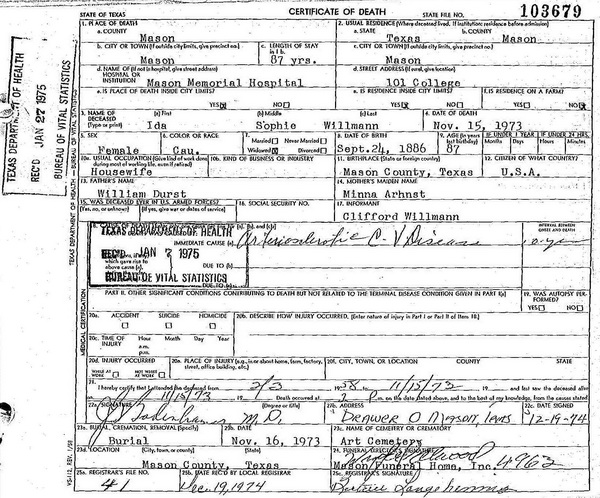 CERTIFICATE OF DEATH
STATE OF TEXAS
STATE FILE NO. 103679
1. PLACE OF DEATH
2. USUAL RESIDENCE (Where deceased lived. If institution: residence before admission)
a. COUNTY
Mason
a. STATE
Texas
b. COUNTY
Mason
b. CITY OR TOWN (If outside city limits, give precinct no.)
Mason
c. LENGTH OF STAY
87 yrs.
c. CITY OR TOWN (If outside city limits, give precinct no.)
Mason
d. NAME OF (If not in hospital, give street address)
HOSPITAL OR
INSTITUTION
Mason Memorial Hospital
d. STREET ADDRESS (If rural, give location)
101 College
e. IS PLACE OF DEATH INSIDE CITY LIMITS?
YES NO
e. IS RESIDENCE INSIDE CITY LIMITS?
YES NO
f. IS RESIDENCE ON A FARM?
YES NO
3. NAME OF
DECEASED
(Type or print)
(a) First
Ida
(b) Middle
Sophie
(c) Last
Willmann
4. DATE OF DEATH
Nov. 15, 1973
5. SEX
Female
6. COLOR OR RACE
Cau.
7. Married Never Married
Widowed Divorced
8. DATE OF BIRTH
Sept.24, 1886
9. AGE (In years last birthday)
87
IF UNDER 1 YEAR
IF UNDER 24 HRS.
10a. USUAL OCCUPATION (Give kind of work done during most of working life, even if retired)
Housewife
10b. KIND OF BUSINESS OR INDUSTRY
11. BIRTHPLACE (State or foreign country)
Mason County, Texas
12. CITIZEN OF WHAT COUNTRY?
U.S.A.
13. FATHER'S NAME
William Durst
14. MOTHER'S MAIDEN NAME
Minna Arhnst
15. WAS DECEASED EVER IN U.S. ARMED FORCES?
(Yes, no, or unknown) (If yes, give war or dates of service)
16. SOCIAL SECURITY NO.
17. INFORMANT
Clifford Willmann
TEXAS DEPARTMENT OF HEALTH
REC'D JAN 7 1975
BUREAU OF VITAL STATISTICS
IMMEDIATE CAUSE (a)
Arteriosclerotic C-V Disease
INTERVAL BETWEEN
ONSET AND DEATH
DUE TO (b)
DUE TO (c)
PART II. OTHER SIGNIFICANT CONDITIONS CONTRIBUTING TO DEATH BUT NOT RELATED TO THE TERMINAL DISEASE CONDITION GIVEN IN PART I(a)
19. WAS AUTOPSY PERFORMED?
YES NO
20a. ACCIDENT SUICIDE HOMICIDE
20b. DESCRIBE HOW INJURY OCCURRED. (Enter nature of injury in Part I or Part II of Item 18.)
20c. TIME OF
INJURY
Hour Month Day Year
a.m.
p.m.
20d. INJURY OCCURRED
WHILE AT WORK NOT WHILE AT WORK
20e. PLACE OF INJURY (e.g., in or about home, farm, factory, street, office building, etc.)
20f. CITY, TOWN, OR LOCATION
COUNTY
STATE
21. I hereby certify that I attended the deceased from 2/3 1958 11/15/73 and last saw the deceased alive
11/15/73 Death occurred at 2 P m. on the date stated above, and to the best of my knowledge, from the causes stated
22a. SIGNATURE
M.D.
22b. ADDRESS
Drawer O Mason, Texas
22c. DATE SIGNED
12-19-74
23a. BURIAL, CREMATION, REMOVAL (Specify)
Burial
23b. DATE
Nov. 16, 1973
23c. NAME OF CEMETERY OR CREMATORY
Art Cemetery
23d. LOCATION (City, town, or county) (State)
Mason County, Texas
24. FUNERAL DIRECTOR'S SIGNATURE
Mason Funeral Home, Inc. 4963
25a. REGISTRAR'S FILE NO.
41
25b. DATE REC'D BY LOCAL REGISTRAR
Dec. 19, 1974
25c. REGISTRAR'S SIGNATURE
TEXAS DEPARTMENT OF HEALTH
REC'D JAN 27 1975
BUREAU OF VITAL STATISTICS
MEDICAL CERTIFICATION